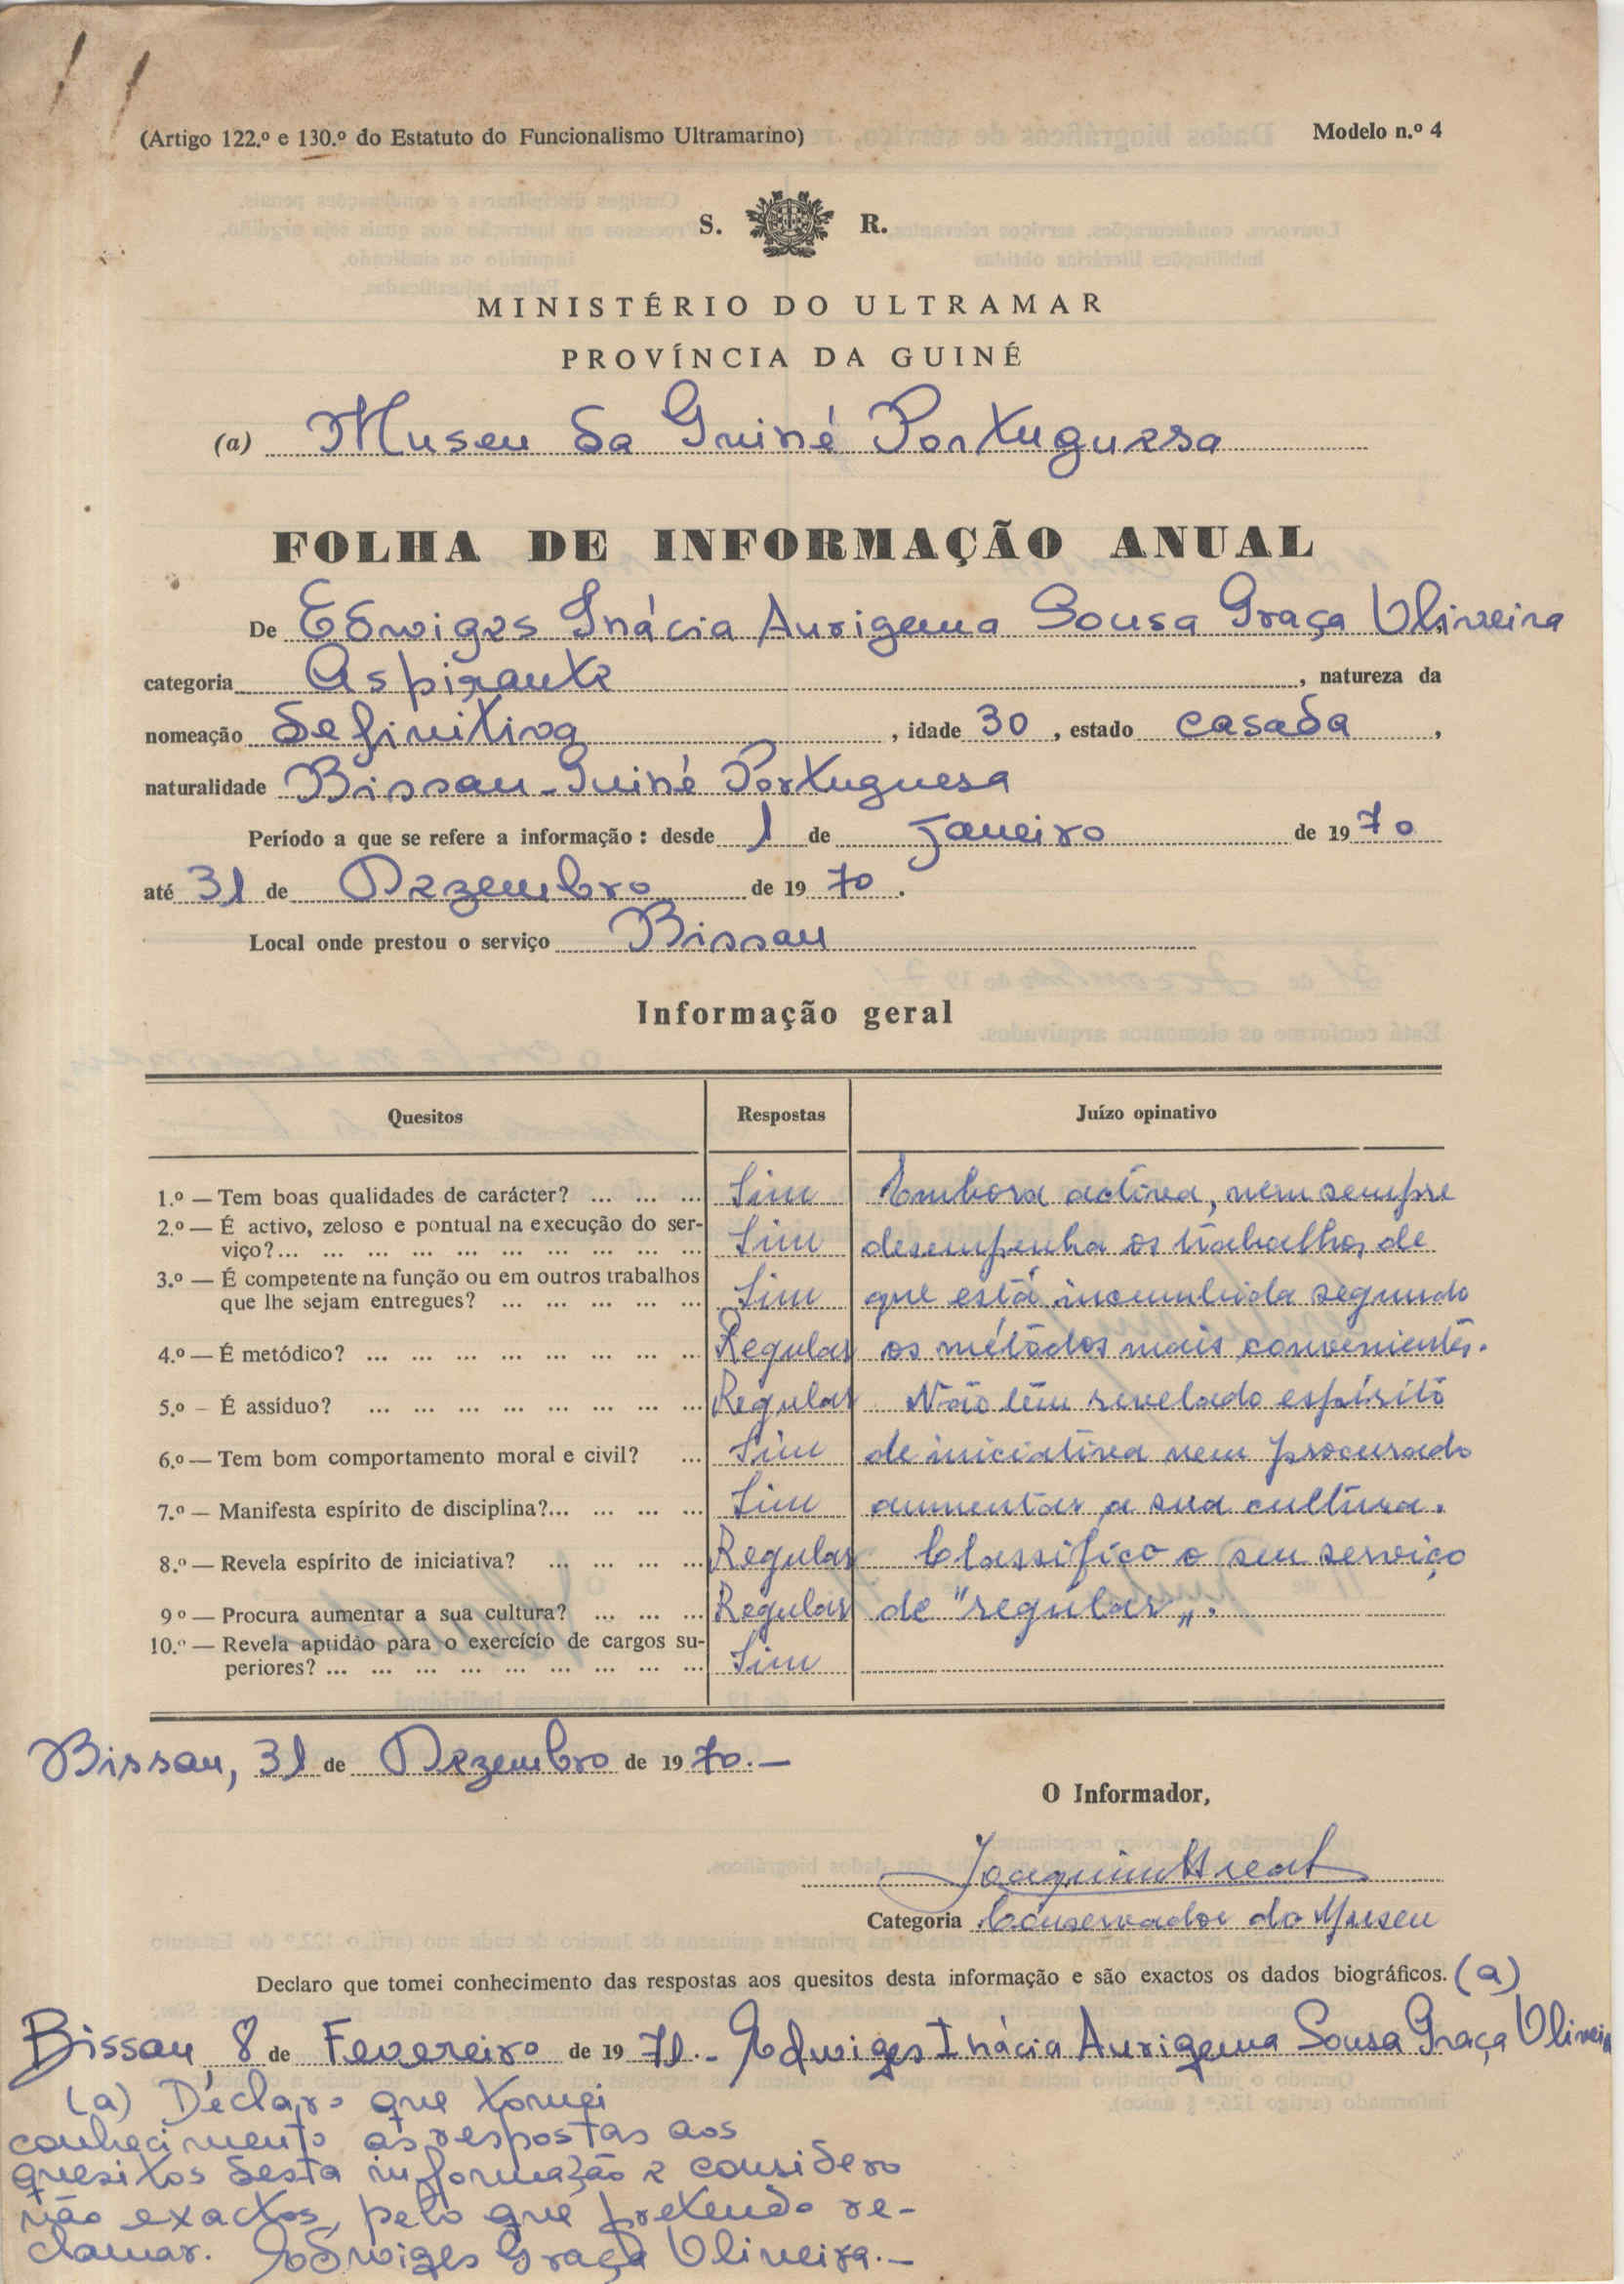 (Artigo 122.º e 130.º do Estatuto do Funcionalismo Ultramarino) Modelo n.º 4
S. R.
MINISTÉRIO DO ULTRAMAR
PROVÍNCIA DA GUINÉ
(a) Museu da Guiné Portuguesa
FOLHA DE INFORMAÇÃO ANUAL
De Edwiges Inácia Aurigema Sousa Graça Oliveira
categoria Aspirante, natureza da
nomeação definitiva, idade 30, estado casada,
naturalidade Bissau-Guiné Portuguesa
Período a que se refere a informação: desde 1 de Janeiro de 1970
até 31 de Dezembro de 1970.
Local onde prestou o serviço Bissau
Informação geral
Quesitos Respostas Juízo opinativo
1.º — Tem boas qualidades de carácter? ... ... ... Sim Embora activa, nem sempre
2.º — É activo, zeloso e pontual na execução do ser-
viço?... ... ... ... ... ... ... ... ... ... Sim desempenha os trabalhos de
3.º — É competente na função ou em outros trabalhos
que lhe sejam entregues? ... ... ... ... ... Sim que está incumbida segundo
4.º — É metódico? ... ... ... ... ... ... ... ... Regular os métodos mais convenientes.
5.º — É assíduo? ... ... ... ... ... ... ... ... Regular Não tem revelado espírito
6.º — Tem bom comportamento moral e civil? ... Sim de iniciativa nem procurado
7.º — Manifesta espírito de disciplina?... ... ... ... Sim aumentar a sua cultura.
8.º — Revela espírito de iniciativa? ... ... ... ... Regular Classifico o seu serviço
9º — Procura aumentar a sua cultura? ... ... ... Regular de "regular".
10.º — Revela aptidão para o exercício de cargos su-
periores? ... ... ... ... ... ... ... ... ... Sim
Bissau, 31 de Dezembro de 1970.—
O Informador,
Joaquim Areal
Categoria Conservador do Museu
Declaro que tomei conhecimento das respostas aos quesitos desta informação e são exactos os dados biográficos. (a)
Bissau 8 de Fevereiro de 1971.- Edwiges Inácia Aurigema Sousa Graça Oliveira
(a) Declaro que tomei
conhecimento as respostas aos
quesitos desta informação e considero
não exactos, pelo que pretendo re-
clamar. Edwiges Graça Oliveira.—